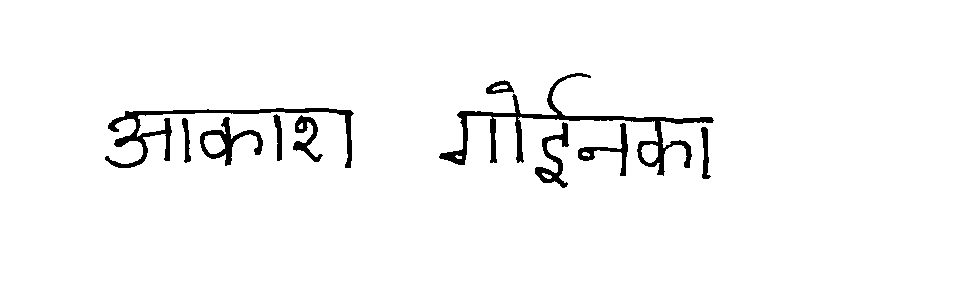 आकाश गोईनका